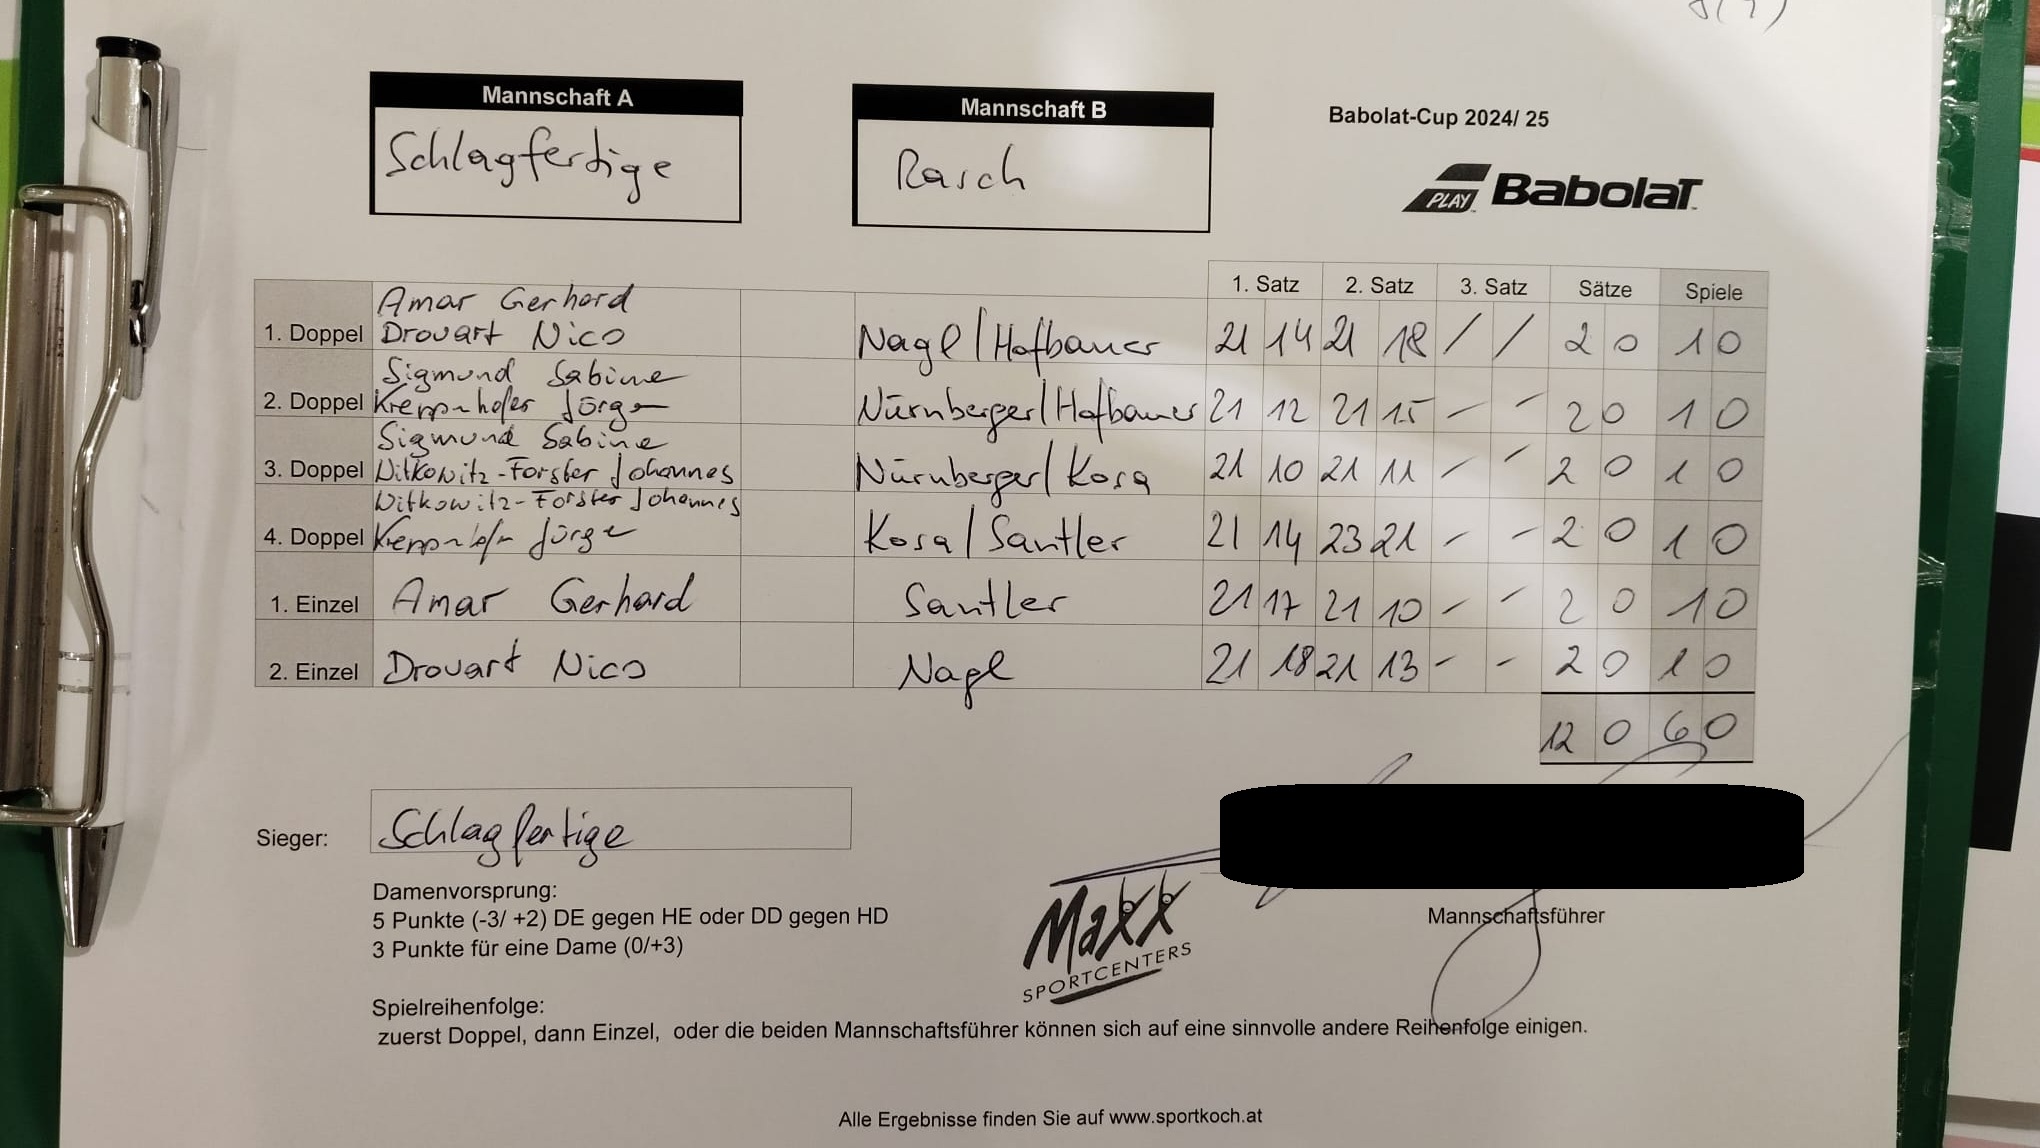 Mannschaft A
Schlagfertige
Mannschaft B
Rasch
Babolat-Cup 2024/ 25
PLAY BabolaT
1. Satz 2. Satz 3. Satz Sätze Spiele
Amar Gerhard
1. Doppel Drouart Nico Nagl/Hofbauer 21 14 21 18 / / 2 0 1 0
Sigmund Sabine
2. Doppel Kreppnhofer Jörg Nürnberger/Hofbauer 21 12 21 15 - - 2 0 1 0
Sigmund Sabine
3. Doppel Witkowitz-Forster Johannes Nürnberger/Kosa 21 10 21 11 - - 2 0 1 0
Witkowitz-Forster Johannes
4. Doppel Jörg Kosa/Santler 21 14 23 21 - - 2 0 1 0
1. Einzel Amar Gerhard Santler 21 17 21 10 - - 2 0 1 0
2. Einzel Drouart Nico Nagl 21 18 21 13 - - 2 0 1 0
12 0 6 0
Sieger: Schlagfertige
Damenvorsprung:
5 Punkte (-3/ +2) DE gegen HE oder DD gegen HD
3 Punkte für eine Dame (0/+3)
Maxx
SPORTCENTERS
Mannschaftsführer
Spielreihenfolge:
zuerst Doppel, dann Einzel, oder die beiden Mannschaftsführer können sich auf eine sinnvolle andere Reihenfolge einigen.
Alle Ergebnisse finden Sie auf www.sportkoch.at